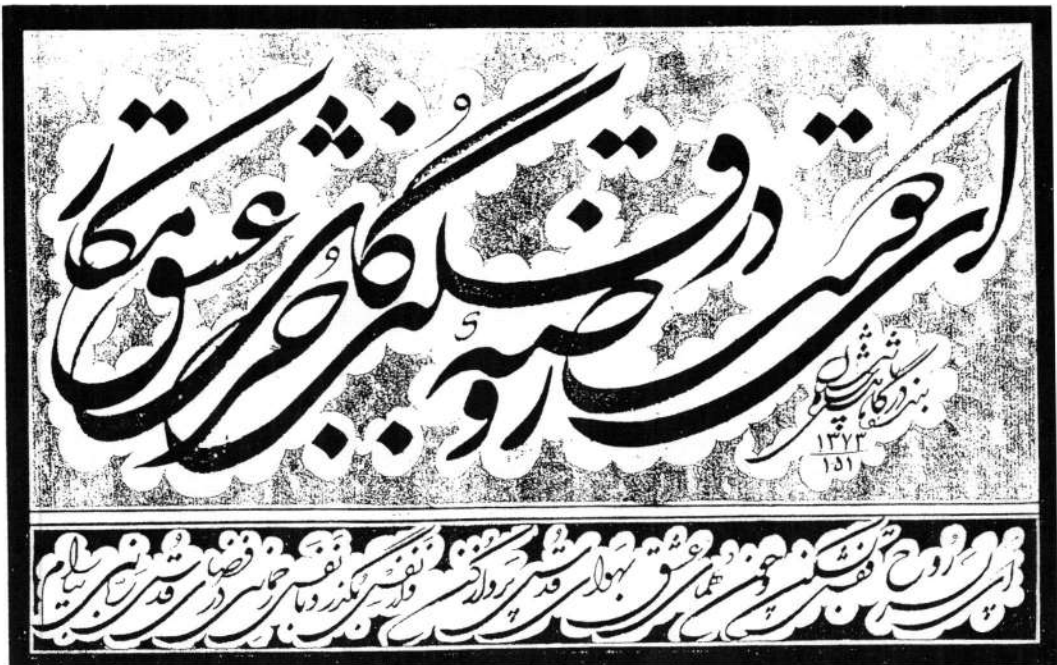 ای دوست در روضه قلب جز گل عشق مکار
۱۳۷۳
۱۵۱
ای پسر روح قفس بشکن و چون همای عشق بهوای قدس پرواز کن و از نفس بگذر و با نفس رحمانی در فضای قدس ربانی بیارام